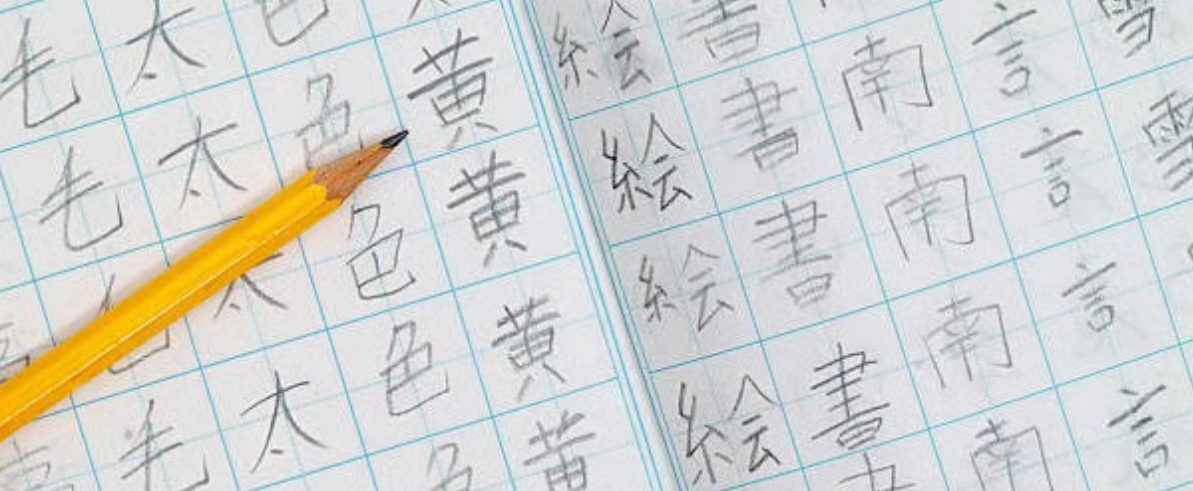 雪雪
言言言言
南南南南
書書書書
絵絵絵絵
黄黄黄黄
色色色色色
太太太太
毛毛毛毛